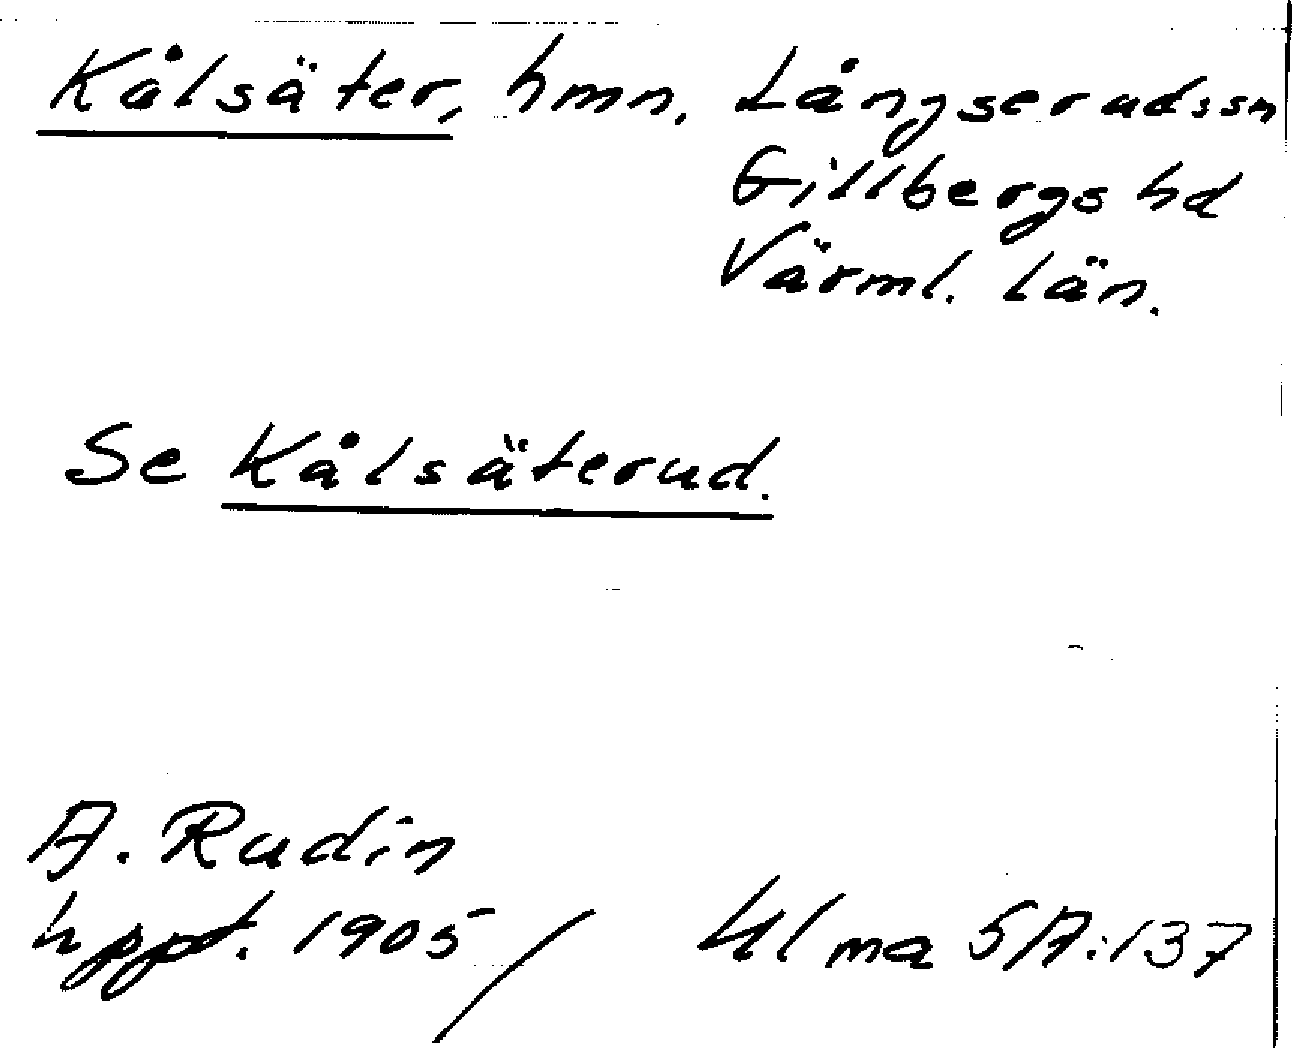 Kålsäter, hmn. Långserudssn
Gillbergs hd
Värml. län.
Se Kålsäterud.
A. Rudin
uppt. 1905/ Ulma 5A:137